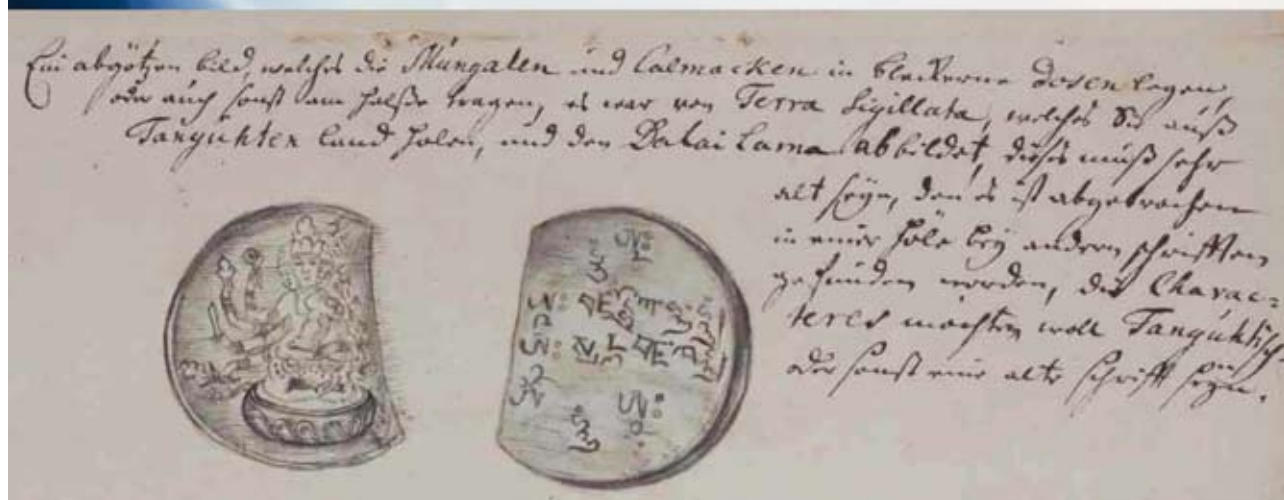 Ein abgötzen bild, welches die Mungalen und Calmacken in blecherne Dosen legen,
oder auch sonst am Halsse tragen, es war von Terra Sigillata, welches Sie auß
Tanguhten land holen, und den Dalai Lama abbildet, dieses muß sehr
alt seyn, den es ist abgebrochen
in einer Höle bey andern schrifften
gefunden worden, die Charac-
teres möchten woll Tanguhtisch
oder sonst eine alte schrifft seyn.